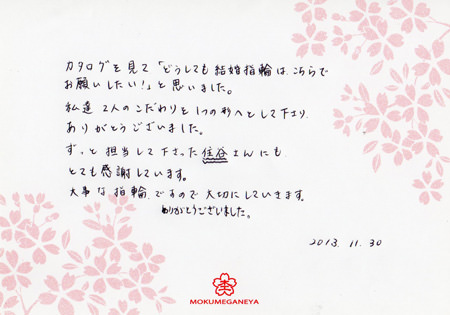 カタログを見て「どうしても結婚指輪は、こちらで
お願いしたい!」と思いました。
私達2人のこだわりを1つの形へとして下さり
ありがとうございました。
ずっと担当して下さった住谷さんにも
とても感謝しています。
大事な指輪ですので大切にしていきます。
ありがとうございました。
2013.11.30
MOKUMEGANEYA